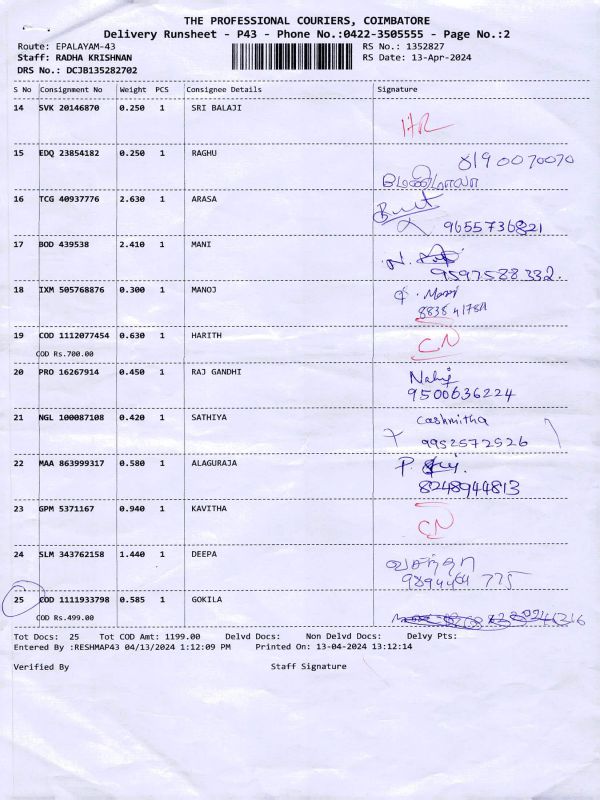 THE PROFESSIONAL COURIERS, COIMBATORE
Delivery Runsheet - P43 - Phone No.:0422-3505555 - Page No.:2
Route: EPALAYAM-43 RS No.: 1352827
Staff: RADHA KRISHNAN RS Date: 13-Apr-2024
DRS No.: DCJB135282702
S No Consignment No Weight PCS Consignee Details Signature
14 SVK 20146870 0.250 1 SRI BALAJI
15 EDQ 23854182 0.250 1 RAGHU 8190070070
மணிமாலா
16 TCG 40937776 2.630 1 ARASA
9655736821
17 BOD 439538 2.410 1 MANI N.
9597588332.
18 IXM 505768876 0.300 1 MANOJ
19 COD 1112077454 0.630 1 HARITH CN
COD Rs.700.00
20 PRO 16267914 0.450 1 RAJ GANDHI
9500636224
21 NGL 100087108 0.420 1 SATHIYA Cashmitha
9952572526
22 MAA 863999317 0.580 1 ALAGURAJA P.
8248944813
23 GPM 5371167 0.940 1 KAVITHA CN
24 SLM 343762158 1.440 1 DEEPA வசந்தா
25 COD 1111933798 0.585 1 GOKILA
COD Rs.499.00
Tot Docs: 25 Tot COD Amt: 1199.00 Delvd Docs: Non Delvd Docs: Delvy Pts:
Entered By :RESHMAP43 04/13/2024 1:12:09 PM Printed On: 13-04-2024 13:12:14
Verified By Staff Signature